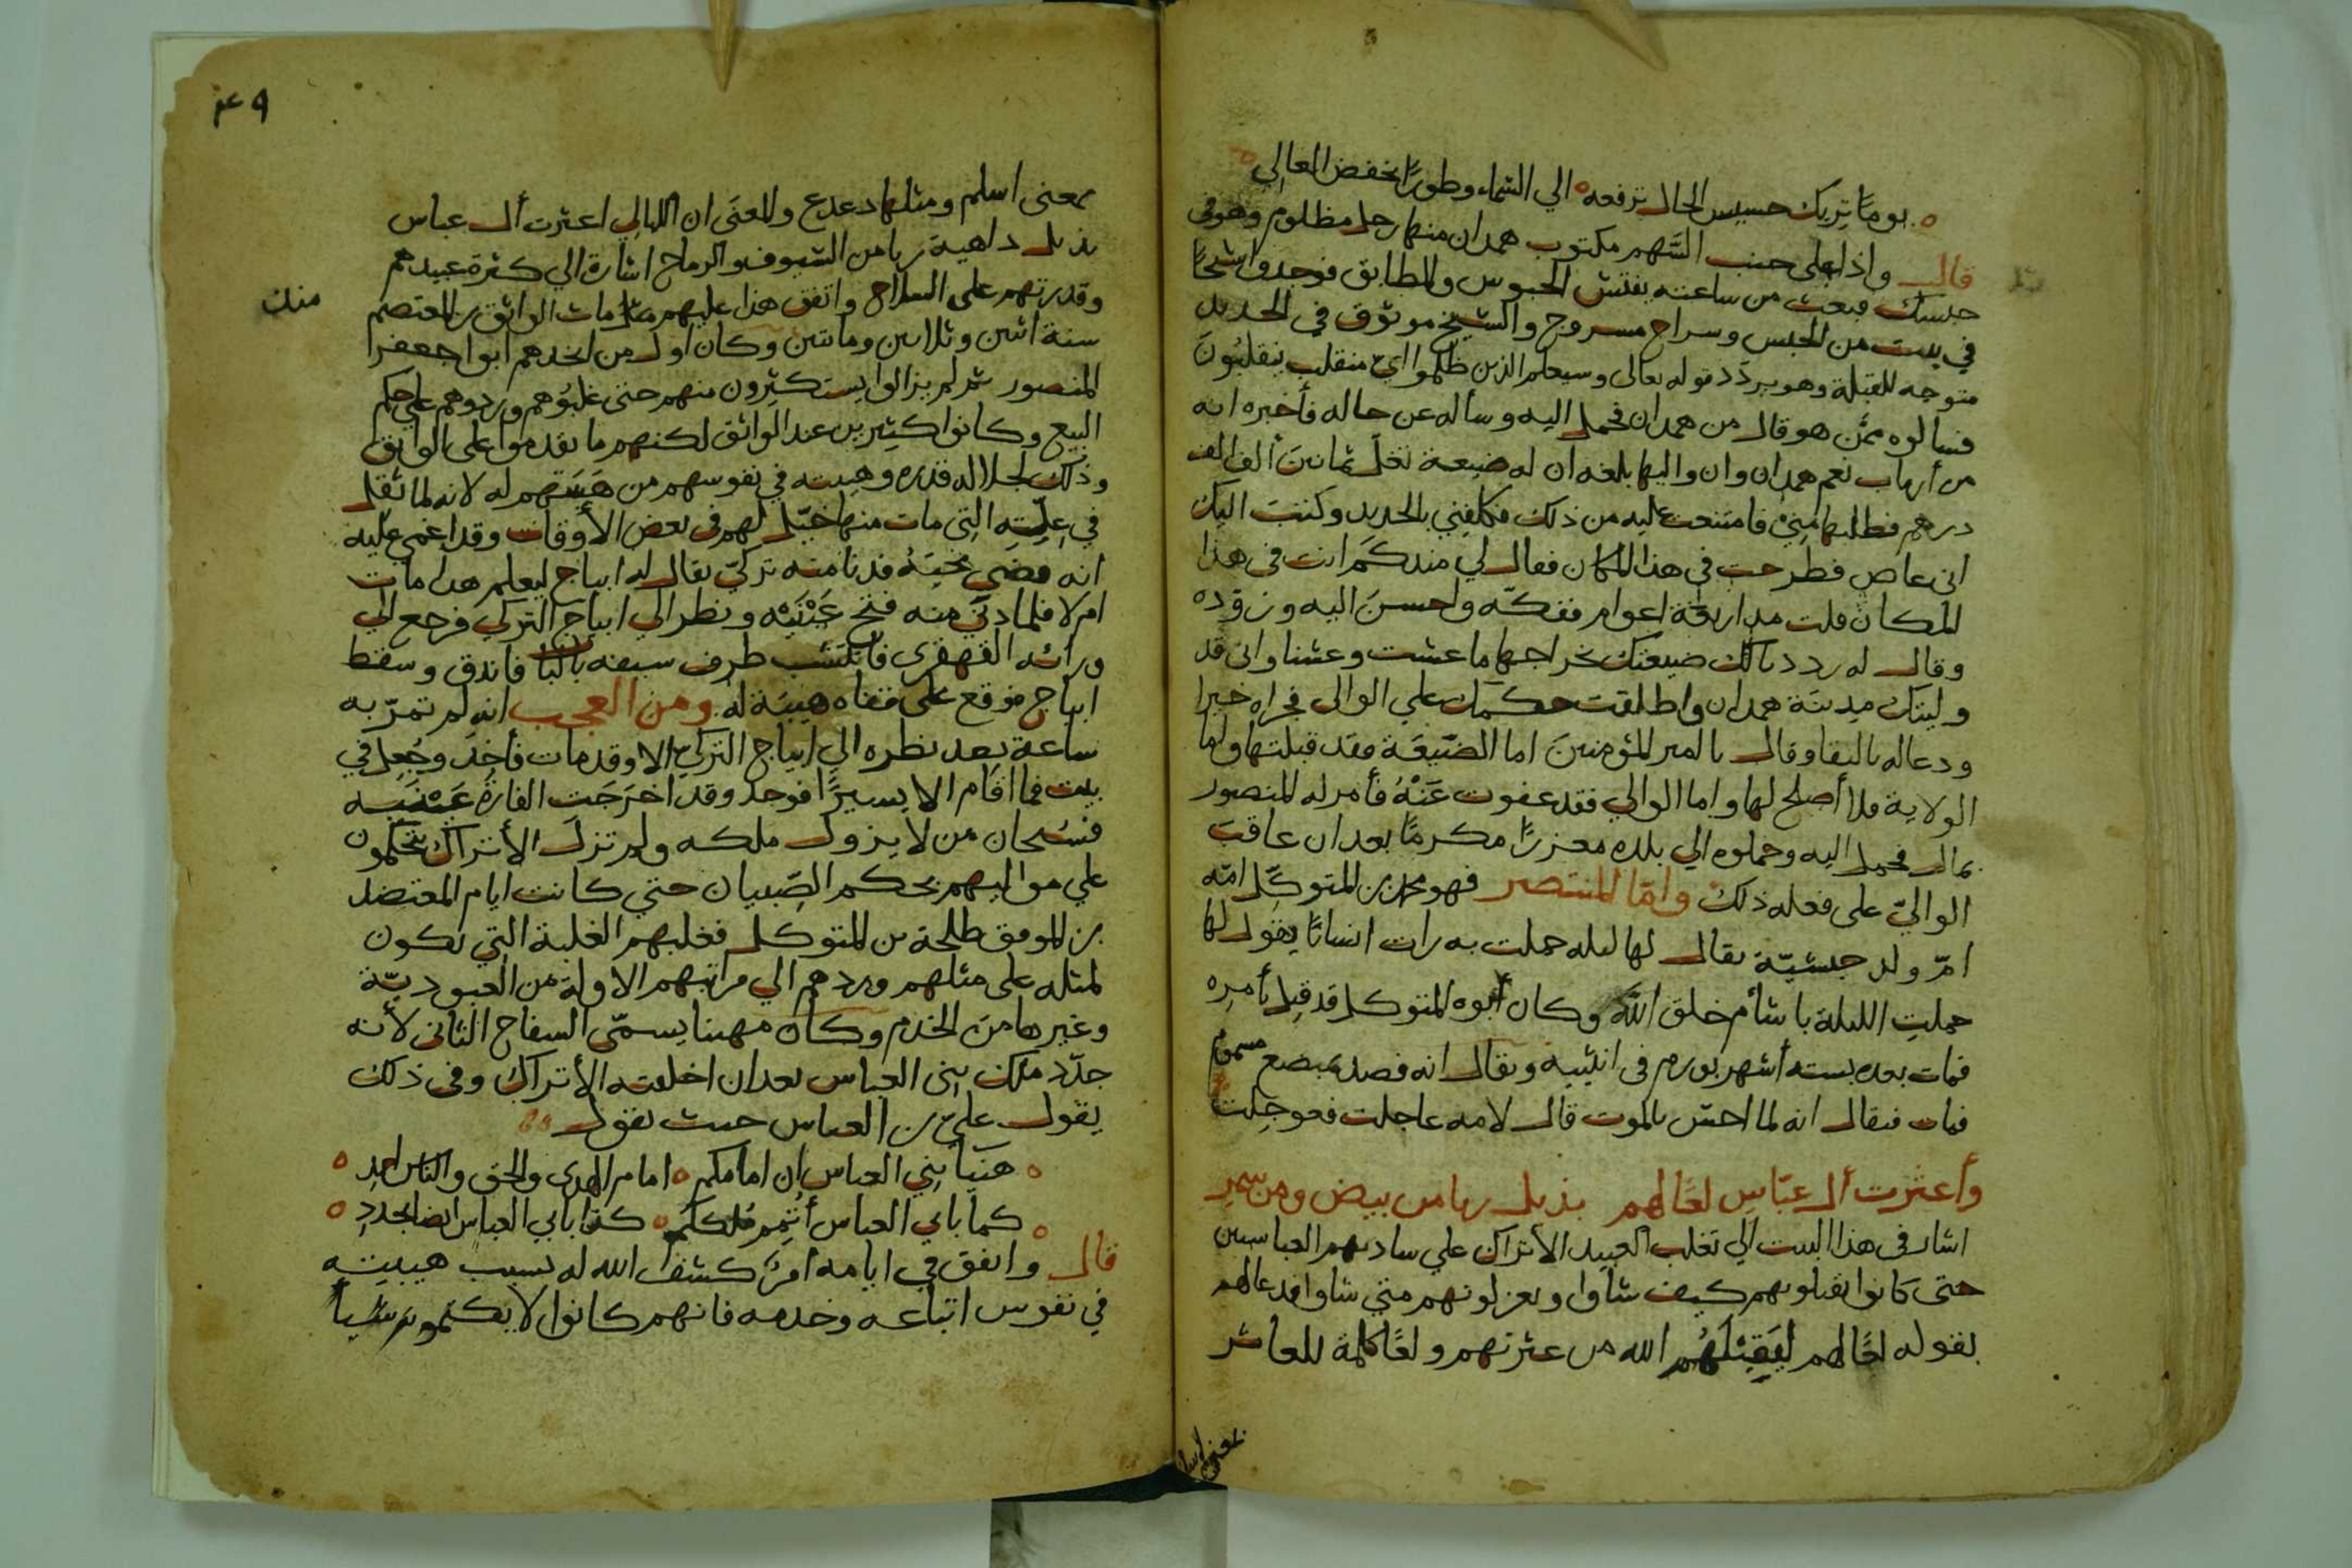 يومًا تريك خسيس الحال ترفعه الي السماء وطورًا تخفض العالي
قال واذا علي جنب السهم مكتوب همدان منها رجل مظلوم وهو في
حبسك فبعث من ساعته بفتش الحبوس والمطابق فوجدوا شيخًا
في بيت من الحبس وسراج مسروج والشيخ موثوق في الحديد
متوجه للقبلة وهو يردد قوله تعالى وسيعلم الذين ظلموا اي منقلب ينقلبون
فسالوه ممن هو قال من همدان فحمل اليه وسأله عن حاله فأخبره انه
من أرباب نعم همدان وان واليها بلغه ان له ضيعة تغل ثمانين ألف الف
درهم فطلبها مني فامتنعت عليه من ذلك فكلفني بالحديد وكتب اليك
اني عاص فطرحت في هذا المكان فقال لي منذ كم انت في هذا
المكان قلت مذ اربعة اعوام ففكه واحسن اليه وزوده
وقال له رددنا لك ضيعتك بخراجها ما عشت وعشنا واني قد
وليتك مدينة همدان واطلقت حكمك علي الوالي فجزاه خيرا
ودعا له بالبقا وقال يا امير المؤمنين اما الضيعة فقد قبلتها واما
الولاية فلا أصلح لها واما الوالي فقد عفوت عنه فأمر له المنصور
بمال فحمل اليه وحملوه الي بلده معززًا مكرمًا بعد ان عاقب
الوالي على فعله ذلك وامّا المنتصر فهو محمد بن المتوكل امه
ام ولد حبشيّة يقال لها ليله حملت به رات انسانًا يقول لها
حملت الليلة باشأم خلق الله وكان أبوه المتوكل قد قتل بأمره
فمات بعده بستة أشهر بورم في انثييه ويقال انه فصد بمبضع مسموم
فمات فيقال انه لما احس بالموت قال لامه عاجلت فعوجلت
وأعثرت أل عبّاس لعًا لهم بذيل رباء من بيض ومن سمر
اشار في هذا البيت الي تغلب العبيد الأتراك علي سادتهم العباسيين
حتى كانوا يقتلونهم كيف شاوا ويعزلونهم متي شاوا فدعا لهم
بقوله لعًا لهم ليقيلهم الله من عثرتهم ولعًا كلمة للعاثر
بمعنى اسلم
٤٩
بمعنى اسلم ومثلها دعدع والمعنى ان الليالي اعثرت أل عباس
بذيل داهية ربا من السيوف والرماح اشارة الي كثرة عبيدهم
وقدرتهم على السلاح واتفق هذا عليهم منذ مات الواثق بن المعتصم
منذ
سنة اثنين وثلاثين ومايتين وكان اول من اتخذهم ابوا جعفر
المنصور ثم لم يزالوا يستكثرون منهم حتى غلبوهم وردوهم علي حكم
البيع وكانوا كثيرين عند الواثق لكنهم ما تقدموا على الواثق
وذلك لجلالة قدره وهيبته في نفوسهم من هيبتهم له لانه لما ثقل
في علته التي مات منها خيّل لهم في بعض الأوقات وقد اغمي عليه
انه قضي نحبه فدنا منه تركي يقال له ايتاخ ليعلم هل مات
ام لا فلما دني منه فتح عينيه ونظر الي ايتاخ التركي فرجع الي
ورائه القهقري فانتشب طرف سيفه بالباب فاندق وسقط
ايتاخ فوقع على قفاه هيبة له ومن العجب انه لم تمرّ به
ساعة بعد نظره الي ايتاخ التركي الا وقد مات فأخذ وجعل في
بيت فما اقام الا يسيرًا فوجد وقد اخرجت الفارة عينيه
فسبحان من لا يزول ملكه ولم تزل الأتراك يتحكمون
علي مواليهم بحكم الصبيان حتي كانت ايام المعتضد
بن الموفق طلحة بن المتوكل فغلبهم الغلبة التي تكون
لمثله على مثلهم وردهم الي مراتبهم الاولة من العبوديّة
وغيرها من الخدم وكان مهيبا يسمّى السفاح الثاني لأنه
جدّد ملك بني العباس بعد ان اخلقته الأتراك وفي ذلك
يقول عليّ بن العباس حيث يقول
هنيا بني العباس ان امامكم امام الهدى والحق والناس احمد
كما بابي العباس أنشئ ملككم كذا بابي العباس ايضا يجدد
قال واتفق في ايامه امر كشفه الله له بسبب هيبته
في نفوس اتباعه وخدمه فانهم كانوا لا يكتمونه شيا